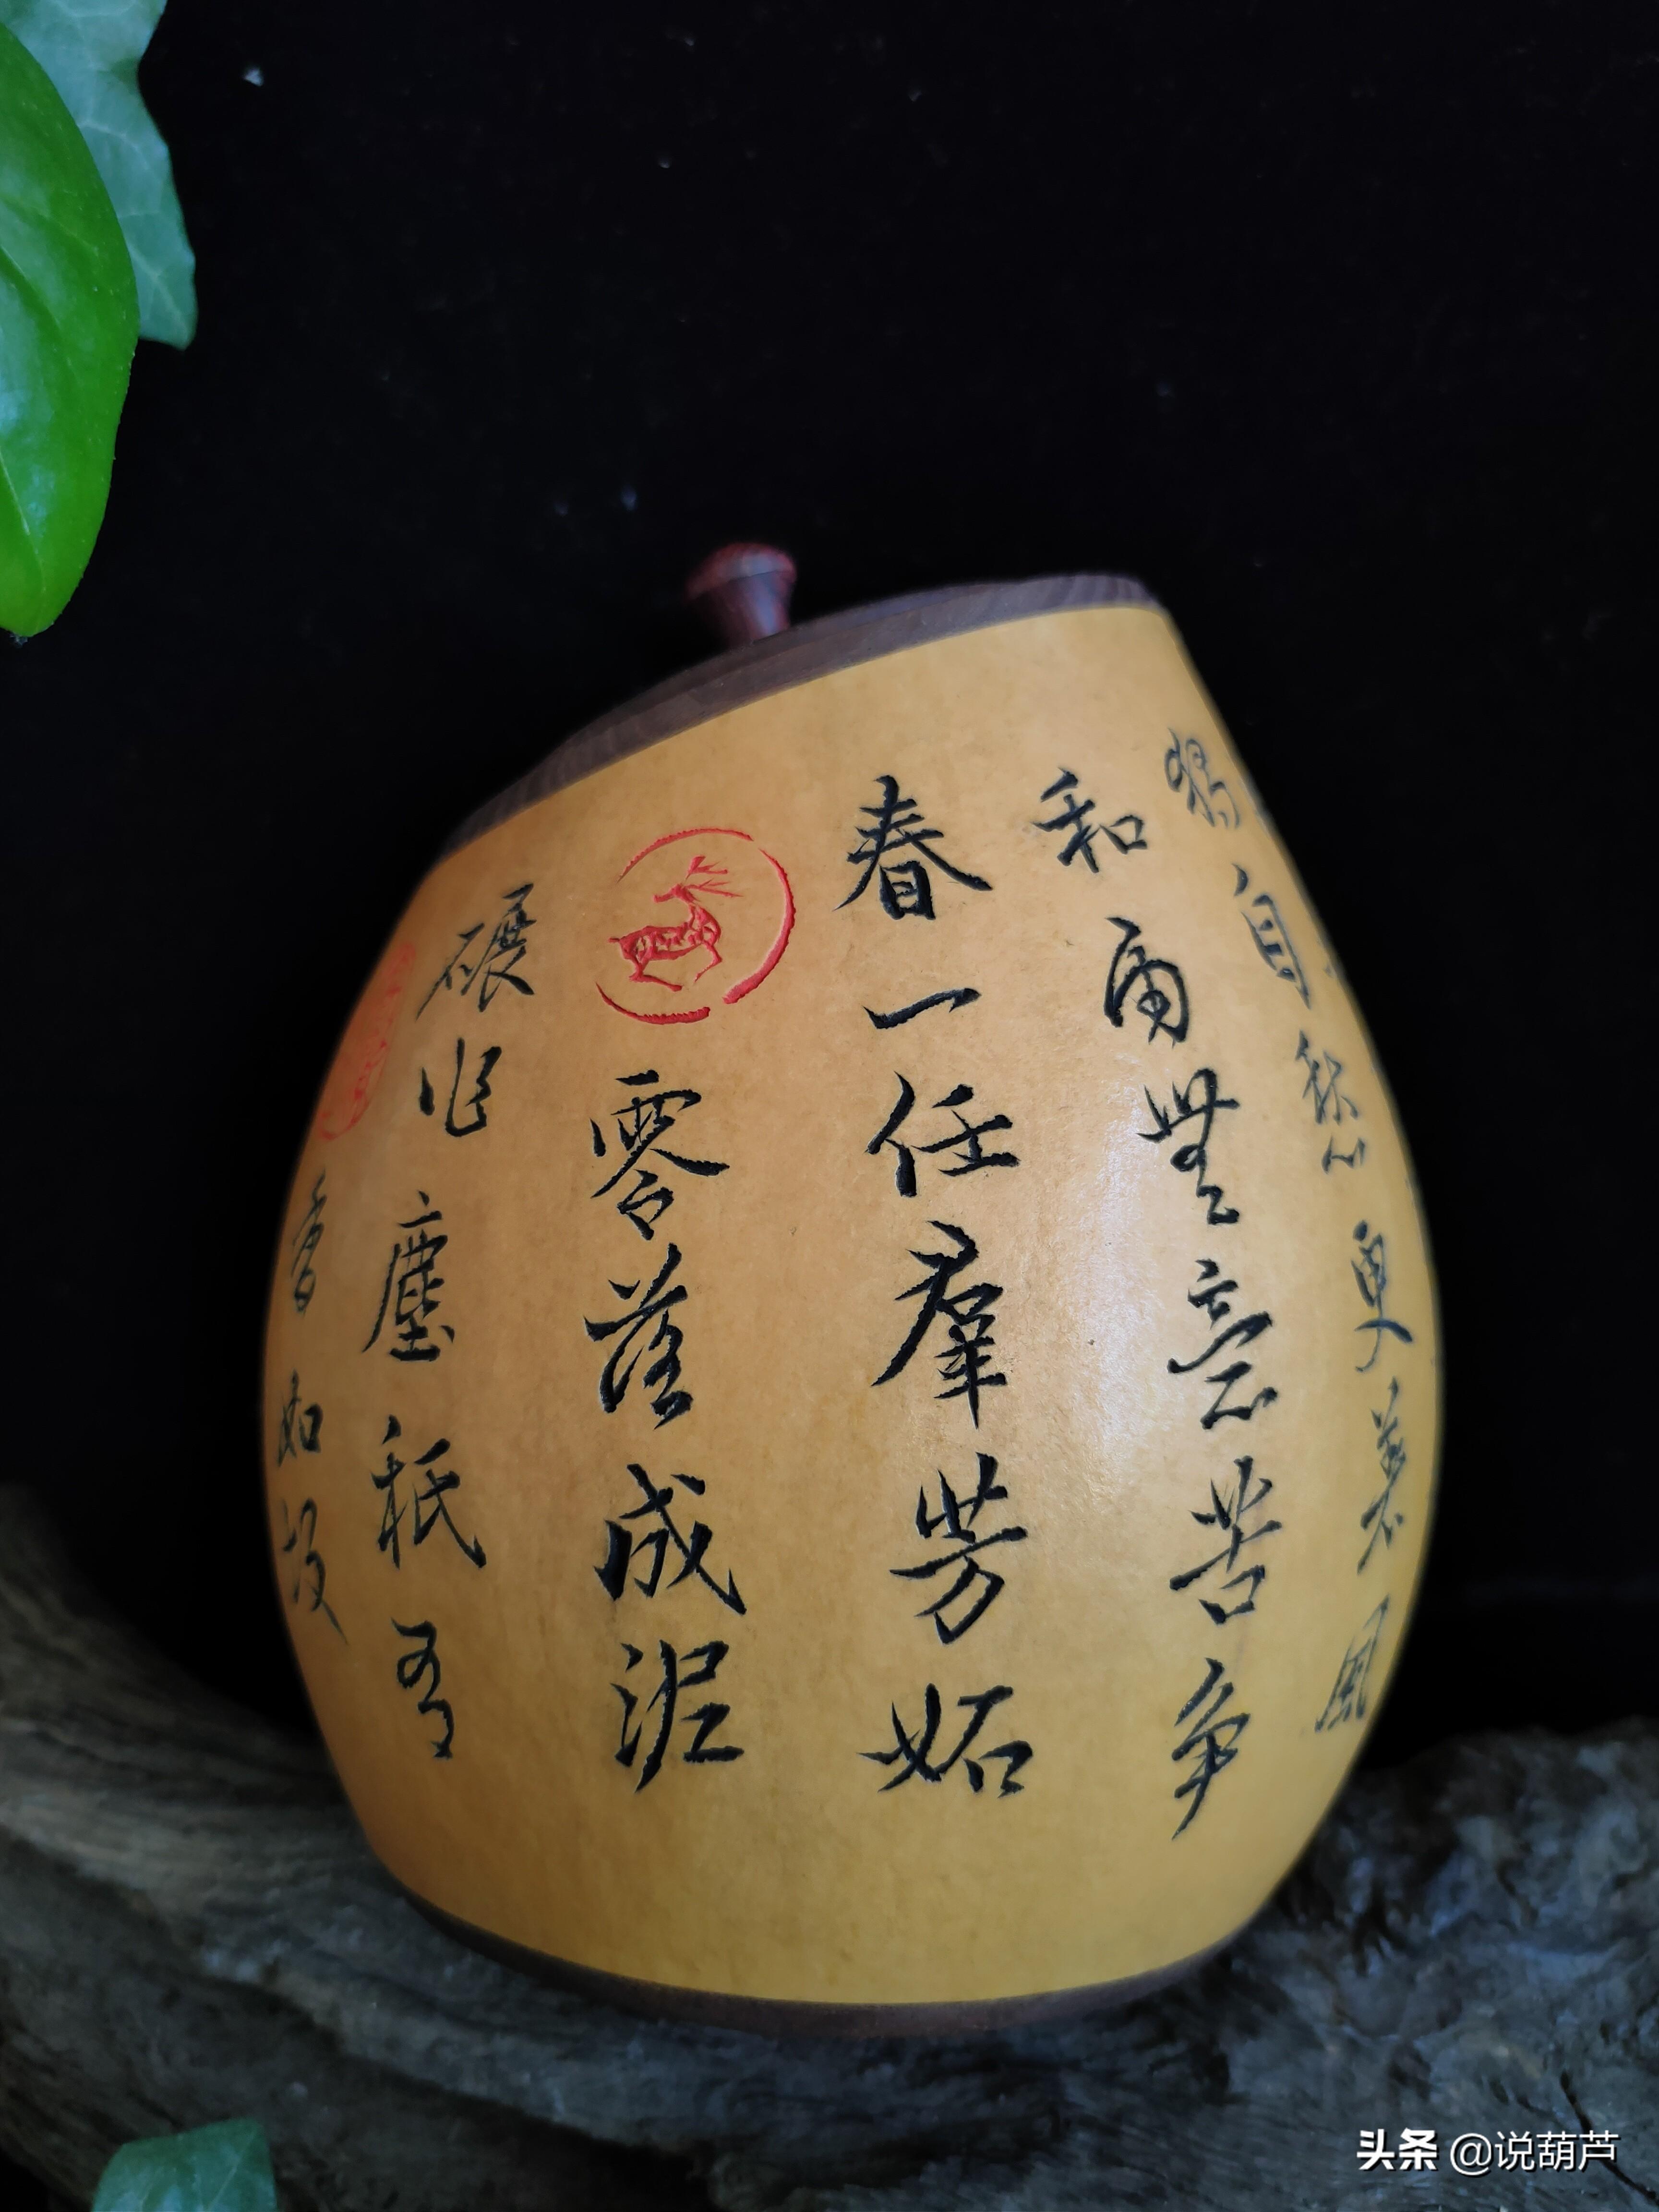 獨自愁更著風
和雨無意苦爭
春一任羣芳妬
零落成泥
碾作塵秖有
香如故
头条 @说葫芦